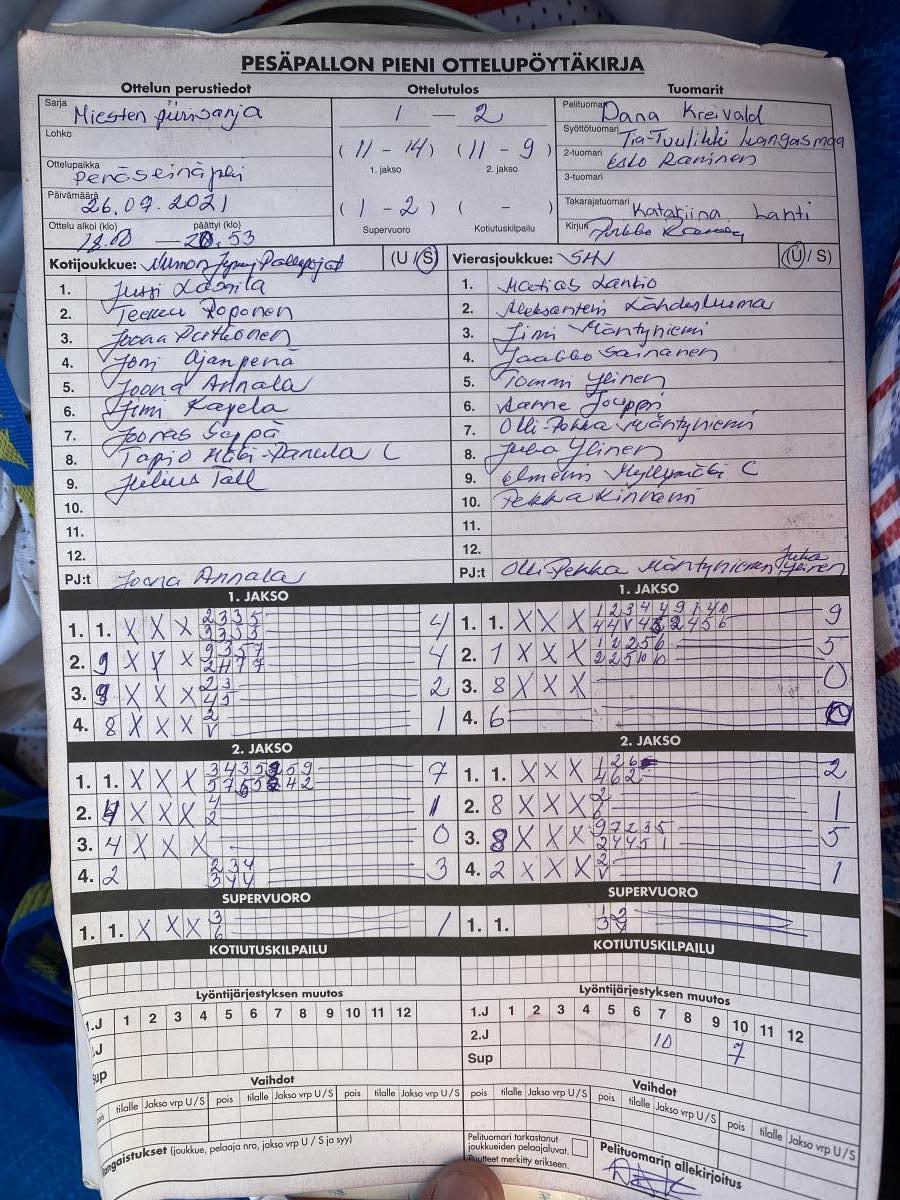 PESÄPALLON PIENI OTTELUPÖYTÄKIRJA
Ottelun perustiedot Ottelutulos Tuomarit
Sarja Miesten piirisarja
Lohko
Ottelupaikka Peräseinäjoki
Päivämäärä 26.09.2021
Ottelu alkoi (klo) päättyi (klo)
18.00 — 20.53
1 — 2
(11 - 14) (11 - 9)
1. jakso 2. jakso
(1 - 2) ( - )
Supervuoro Kotiutuskilpailu
Pelituomari Dana Kreivald
Syöttötuomari Tia-Tuulikki Kangasmaa
2-tuomari Esko Raninen
3-tuomari
Takarajatuomari Katariina Lahti
Kirjuri
Kotijoukkue: Nurmon Jymy Pallopojat (U / S)
1. Jussi
2. Teemu Roponen
3. Joona Putkonen
4. Joni Ajanpenä
5. Joona Annala
6. Jimi Kapela
7. Joonas Seppä
8. Tapio C
9. Julius Tall
10.
11.
12.
PJ:t Joona Annala
Vierasjoukkue: (U / S)
1. Matias
2. Aleksanteri Lähdesluoma
3. Jimi Mäntyniemi
4. Jaakko Sainanen
5. Tommi Ylinen
6. Aarne Jouppi
7. Olli-Pekka Mäntyniemi
8. Juha Ylinen
9. Elmeri Myllymäki C
10. Pekka Kinnari
11.
12.
PJ:t Olli-Pekka Mäntyniemi Juha Ylinen
1. JAKSO 1. JAKSO
1. 1. X X X 2 3 3 5 4
3 3 5 5
2. 9 X X X 9 3 5 7 4
2 4 7 7
3. 8 X X X 2 3 2
4 5
4. 8 X X X 2 1
V
1. 1. X X X 1 2 3 4 4 9 1 4 10 9
4 4 V 4 2 4 5 6
2. 1 X X X 1 2 2 5 6 5
2 2 5 10 10
3. 8 X X X 0
4. 6 0
2. JAKSO 2. JAKSO
1. 1. X X X 3 4 3 5 5 9 7
2. 4 X X X 4 1
2
3. 4 X X X 0
4. 2 2 3 4 3
3 4 4
1. 1. X X X 1 2 6 2
4 6 2
2. 8 X X X 2 1
3. 8 X X X 9 7 2 3 5 5
2 4 4 5 1
4. 2 X X X 2 1
V
SUPERVUORO SUPERVUORO
1. 1. X X X 3 1
6
1. 1. 1 2
3
KOTIUTUSKILPAILU KOTIUTUSKILPAILU
Lyöntijärjestyksen muutos Lyöntijärjestyksen muutos
1.J 1 2 3 4 5 6 7 8 9 10 11 12
.J
Sup
1.J 1 2 3 4 5 6 7 8 9 10 11 12
2.J 10 7
Sup
Vaihdot Vaihdot
pois tilalle Jakso vrp U / S pois tilalle Jakso vrp U / S pois tilalle Jakso vrp U / S
pois tilalle Jakso vrp U / S pois tilalle Jakso vrp U / S pois tilalle Jakso vrp U / S
Rangaistukset (joukkue, pelaaja nro, jakso vrp U / S ja syy)
Pelituomari tarkastanut
joukkueiden pelaajaluvat.
Puutteet merkitty erikseen.
Pelituomarin allekirjoitus